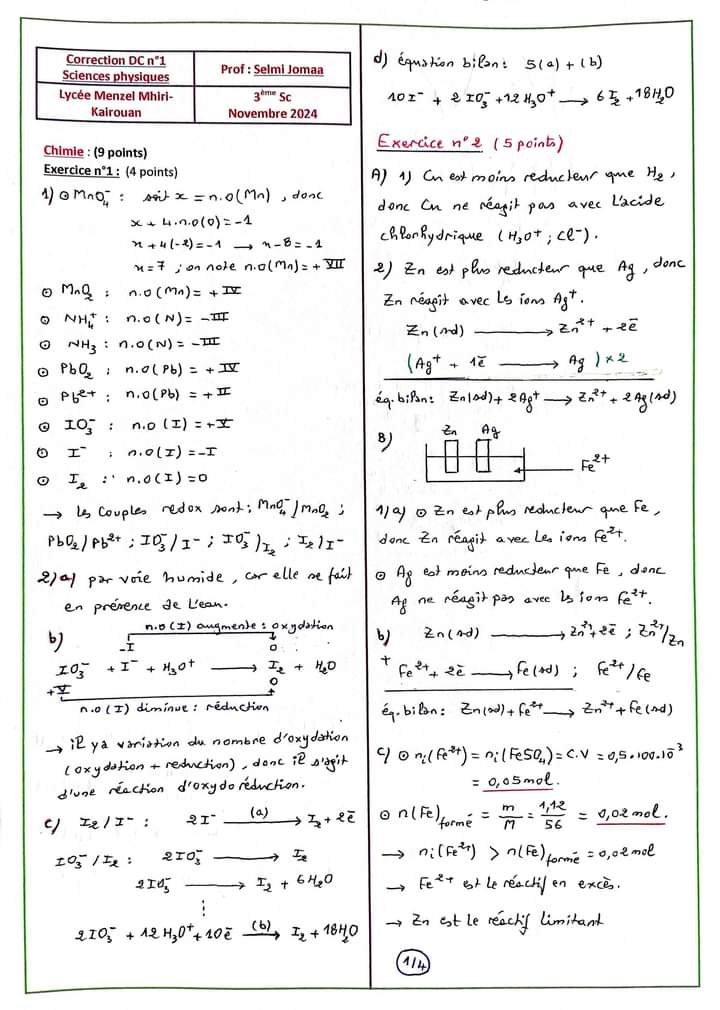 Correction DC n°1
Sciences physiques
Prof : Selmi Jomaa
Lycée Menzel Mhiri-
Kairouan
3ème Sc
Novembre 2024
Chimie : (9 points)
Exercice n°1 : (4 points)
1) ⊙ MnO₄⁻ : soit x = n.o(Mn), donc
x + 4.n.o(O) = -1
x + 4(-2) = -1 → x - 8 = -1
x = 7 ; on note n.o(Mn) = + VII
⊙ MnO₂ : n.o(Mn) = + IV
⊙ NH₄⁺ : n.o(N) = - III
⊙ NH₃ : n.o(N) = - III
⊙ PbO₂ : n.o(Pb) = + IV
⊙ Pb²⁺ : n.o(Pb) = + II
⊙ IO₃⁻ : n.o(I) = + V
⊙ I⁻ : n.o(I) = - I
⊙ I₂ : n.o(I) = 0
→ Les couples redox sont : MnO₄⁻/MnO₂ ;
PbO₂/Pb²⁺ ; IO₃⁻/I⁻ ; IO₃⁻/I₂ ; I₂/I⁻
2)a) par voie humide, car elle se fait
en présence de l'eau.
b) n.o(I) augmente : oxydation
-I 0
IO₃⁻ + I⁻ + H₃O⁺ → I₂ + H₂O
+V 0
n.o(I) diminue : réduction
→ il y a variation du nombre d'oxydation
(oxydation + reduction), donc il s'agit
d'une réaction d'oxydoréduction.
c) I₂/I⁻ : 2I⁻ (a)→ I₂ + 2ē
IO₃⁻/I₂ : 2IO₃⁻ → I₂
2IO₃⁻ → I₂ + 6H₂O
⋮
2IO₃⁻ + 12H₃O⁺ + 10ē (b)→ I₂ + 18H₂O
d) équation bilan : 5(a) + (b)
10I⁻ + 2IO₃⁻ + 12H₃O⁺ → 6I₂ + 18H₂O
Exercice n°2 (5 points)
A) 1) Cu est moins reducteur que H₂,
donc Cu ne réagit pas avec l'acide
chlorhydrique (H₃O⁺ ; Cl⁻).
2) Zn est plus reducteur que Ag, donc
Zn réagit avec les ions Ag⁺.
Zn(sd) → Zn²⁺ + 2ē
(Ag⁺ + 1ē → Ag) × 2
éq. bilan : Zn(sd) + 2Ag⁺ → Zn²⁺ + 2Ag(sd)
B) Zn Ag
Fe²⁺
1/a) ⊙ Zn est plus reducteur que Fe,
donc Zn réagit avec les ions Fe²⁺.
⊙ Ag est moins reducteur que Fe, donc
Ag ne réagit pas avec les ions Fe²⁺.
b) Zn(sd) → Zn²⁺ + 2ē ; Zn²⁺/Zn
+ Fe²⁺ + 2ē → Fe(sd) ; Fe²⁺/Fe
éq. bilan : Zn(sd) + Fe²⁺ → Zn²⁺ + Fe(sd)
c) ⊙ nᵢ(Fe²⁺) = nᵢ(FeSO₄) = C.V = 0,5.100.10⁻³
= 0,05 mol.
⊙ n(Fe)formé = m/M = 1,12/56 = 0,02 mol.
→ nᵢ(Fe²⁺) > n(Fe)formé = 0,02 mol
→ Fe²⁺ est le réactif en excès.
→ Zn est le réactif limitant
1/4